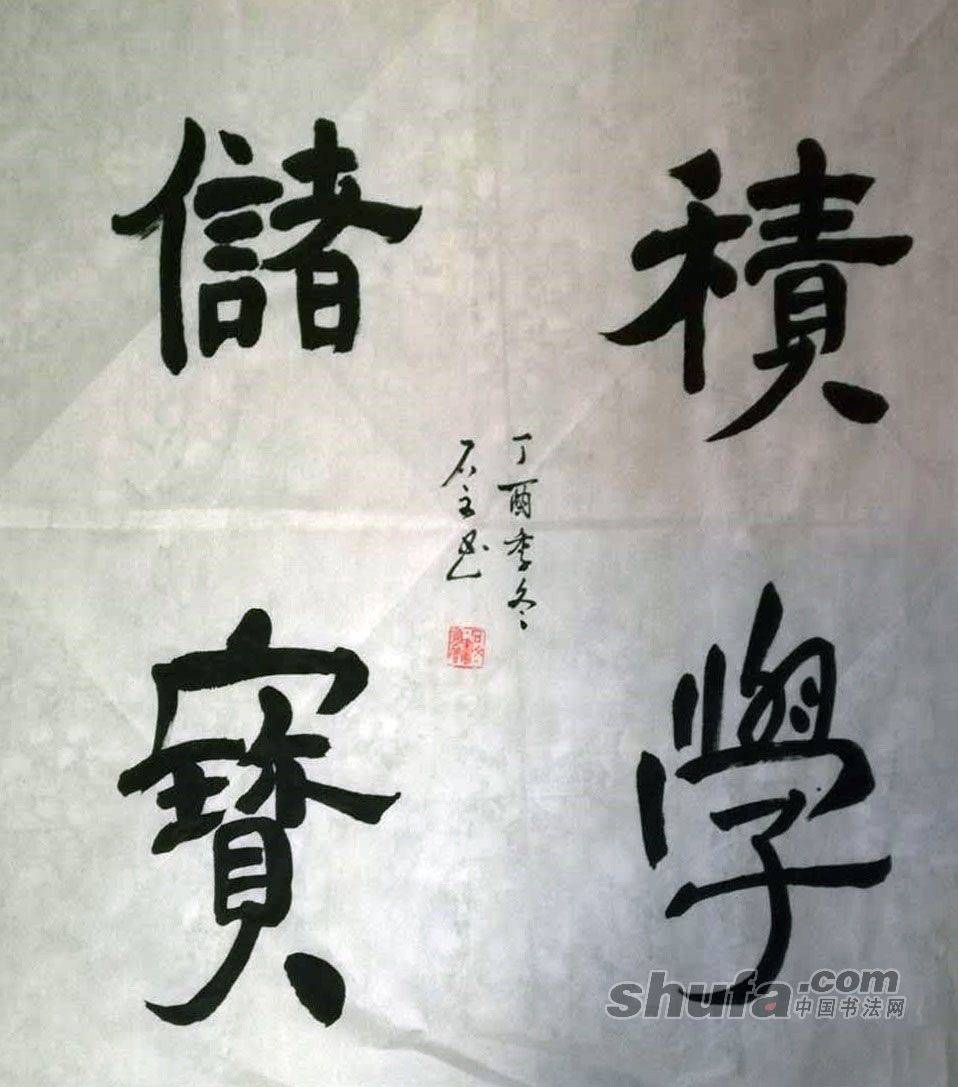 積學
儲寶
丁酉季冬
石文书
shufa.com
中国书法网